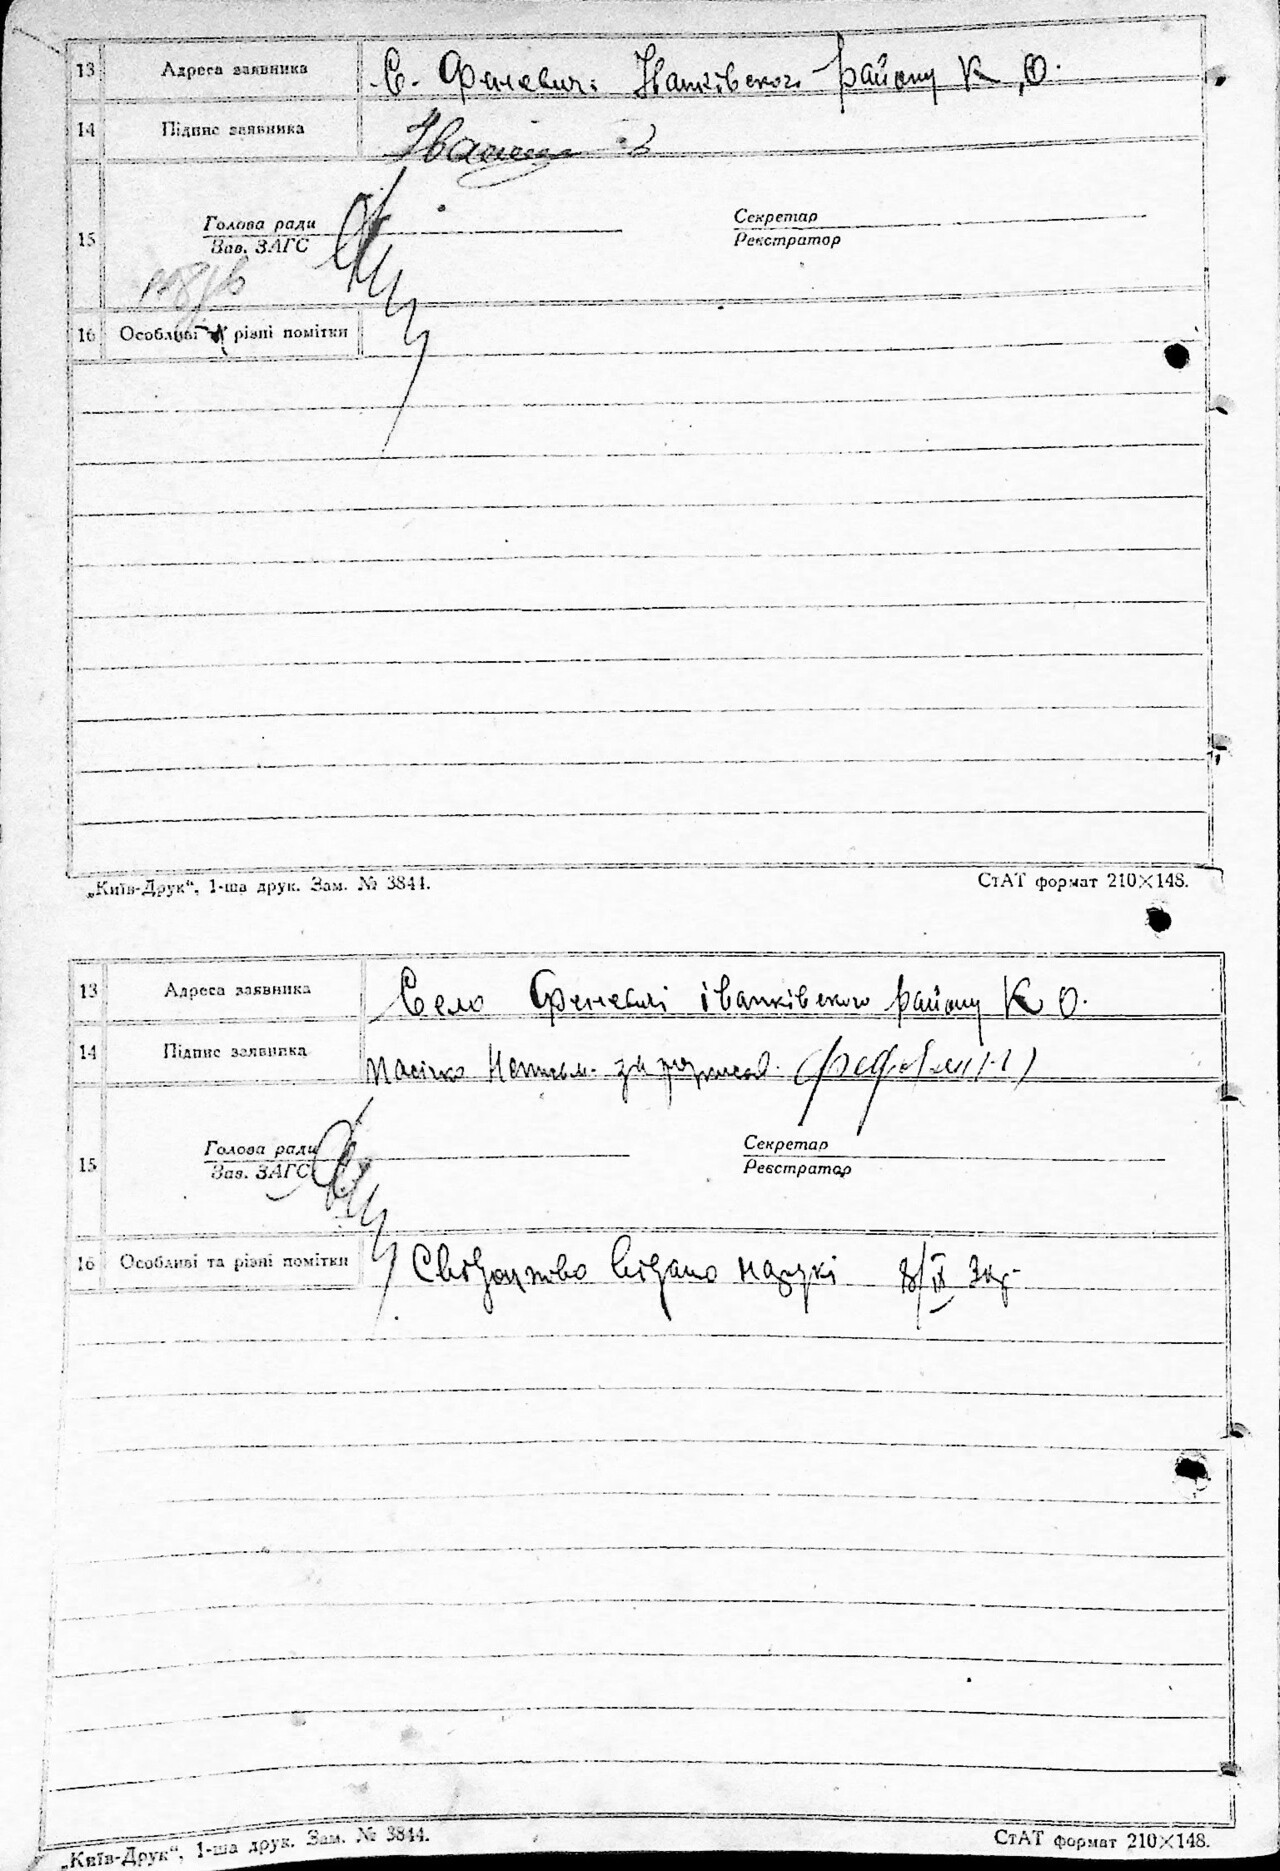 13 Адреса заявника С. Феневичі Іванківського району К.О.
14 Підпис заявника
Голова ради Секретар
15
Зав. ЗАГС Реєстратор
16 Особливі та різні помітки
„Київ-Друк“, 1-ша друк. Зам. № 3844. СтАТ формат 210×148.
13 Адреса заявника Село Феневичі іванківського району К О.
14 Підпис заявника
Голова ради Секретар
15
Зав. ЗАГС Реєстратор
16 Особливі та різні помітки Свідоцтво видано 8/IX
„Київ-Друк“, 1-ша друк. Зам. № 3844. СтАТ формат 210×148.